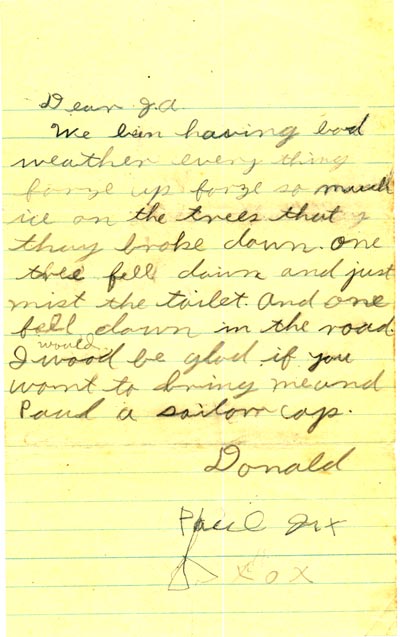 Dear J.A.
We been having bad
weather every thing
forze up forze so much
ice on the trees that
thay broke down. one
tree fell down and just
mist the toilet. And one
fell down in the road.
would
I wood be glad if you
want to bring me and
Paul a sailom cap.
Donald
Paul
x o x